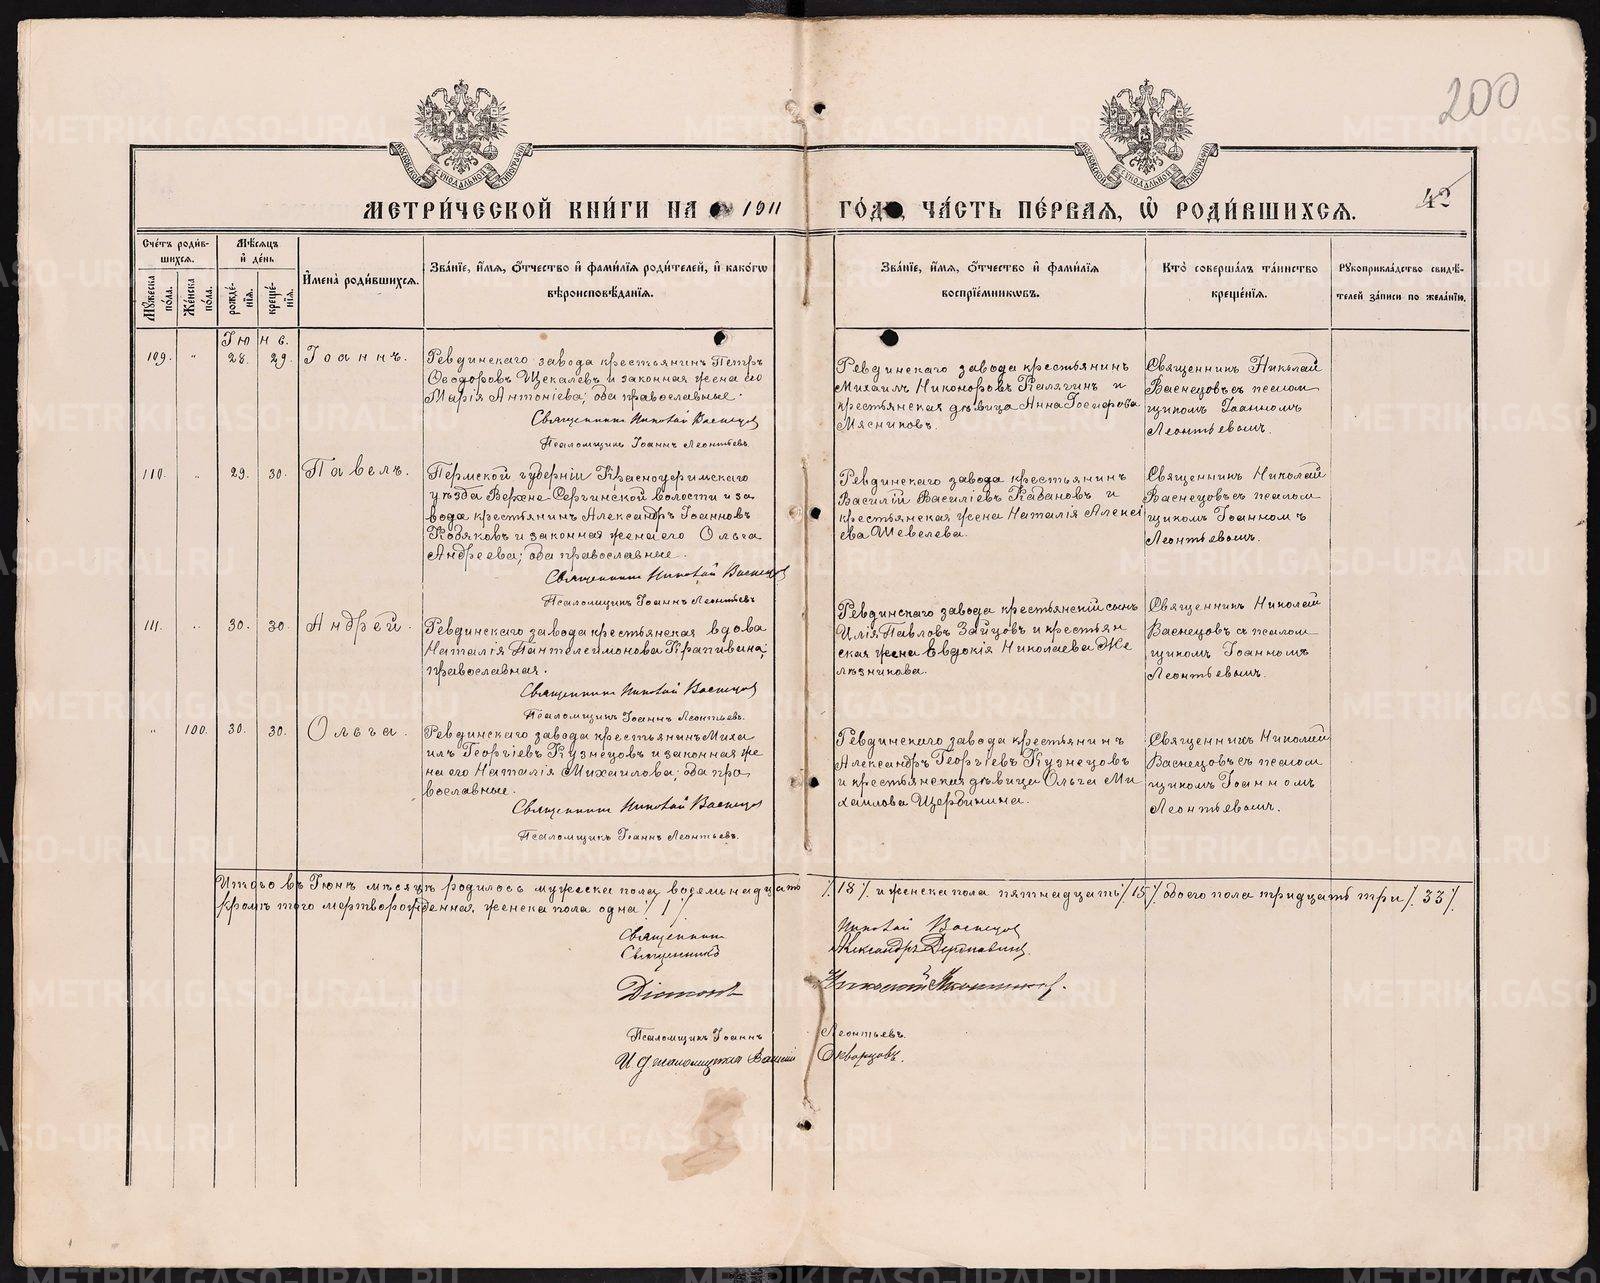 200
42
МЕТРИ́ЧЕСКОЙ КНИ́ГИ НА 1911 ГО́ДЪ, ЧА́СТЬ ПЕ́РВАЯ, Ѡ РОДИ́ВШИХСЯ.
Сче́тъ роди́вшихся.
Мꙋ́жеска по́ла.
Же́нска по́ла.
Мѣ́сяцъ и҆ де́нь
рожде́нїя.
креще́нїя.
И҆мена̀ роди́вшихся.
Зва́нїе, и҆́мя, ѻ҆́тчество и҆ фами́лїя роди́телей, и҆ како́гѡ
вѣроисповѣ́данїя.
Зва́нїе, и҆́мя, ѻ҆́тчество и҆ фами́лїя
воспрїе́мникѡвъ.
Кто̀ соверша́лъ та́инство
креще́нїя.
Рꙋкоприкла́дство свидѣ́-
телей за́писи по жела́нїю.
Іюнь.
109. " 28. 29. Іоаннъ.
Ревдинскаго завода крестьянинъ Петръ
Ѳеодоровъ Щекалевъ и законная жена его
Марія Антоніева; оба православные.
Священникъ Николай Васнецов
Псаломщикъ Іоаннъ Леонтьевъ.
Ревдинскаго завода крестьянинъ
Михаилъ Никоноровъ Калягинъ и
крестьянская дѣвица Анна
Мясниковъ.
Священникъ Николай
Васнецовъ съ псалом
щикомъ Іоанномъ
Леонтьевымъ.
110. " 29. 30. Павелъ.
Пермской губерніи Красноуфимскаго
уѣзда Верхне-Сергинской волости и за
вода крестьянинъ Александръ Іоанновъ
Кобяковъ и законная жена его Ольга
Андреева; оба православные.
Священникъ Николай Васнецов
Псаломщикъ Іоаннъ Леонтьевъ
Ревдинскаго завода крестьянинъ
Василій Василіевъ Кабановъ и
крестьянская жена Наталія Алексі
ева Шевелева.
Священникъ Николай
Васнецовъ съ псалом
щикомъ Іоанномъ
Леонтьевымъ.
111. " 30. 30. Андрей.
Ревдинскаго завода крестьянская вдова
Наталія Пантелеимонова Крапивина;
православная.
Священникъ Николай Васнецов
Псаломщикъ Іоаннъ Леонтьевъ.
Ревдинскаго завода крестьянскій сынъ
Илія Павловъ Зайцовъ и крестьян
ская жена Евдокія Николаева Же
лѣзникова.
Священникъ Николай
Васнецовъ съ псалом
щикомъ Іоанномъ
Леонтьевымъ.
" 100. 30. 30. Ольга.
Ревдинскаго завода крестьянинъ Миха
илъ Георгіевъ Кузнецовъ и законная же
на его Наталія Михаилова; оба пра
вославные.
Священникъ Николай Васнецов
Псаломщикъ Іоаннъ Леонтьевъ.
Ревдинскаго завода крестьянинъ
Александръ Георгіевъ Кузнецовъ
и крестьянская дѣвица Ольга Ми
хаилова Щербинина.
Священникъ Николай
Васнецовъ съ псалом
щикомъ Іоанномъ
Леонтьевымъ.
Итого въ Іюнѣ мѣсяцѣ родилось мужеска пола восемьнадцать /.18./. и женска пола пятнадцать /.15./. обоего пола тридцать три /.33./.
Кромѣ того мертворожденная, женска пола одна /.1./.
Священникъ Николай Васнецов
Священникъ Александръ
Псаломщикъ Іоаннъ Леонтьевъ.
И. д. псаломщика Скворцовъ.
METRIKI.GASO-URAL.RU